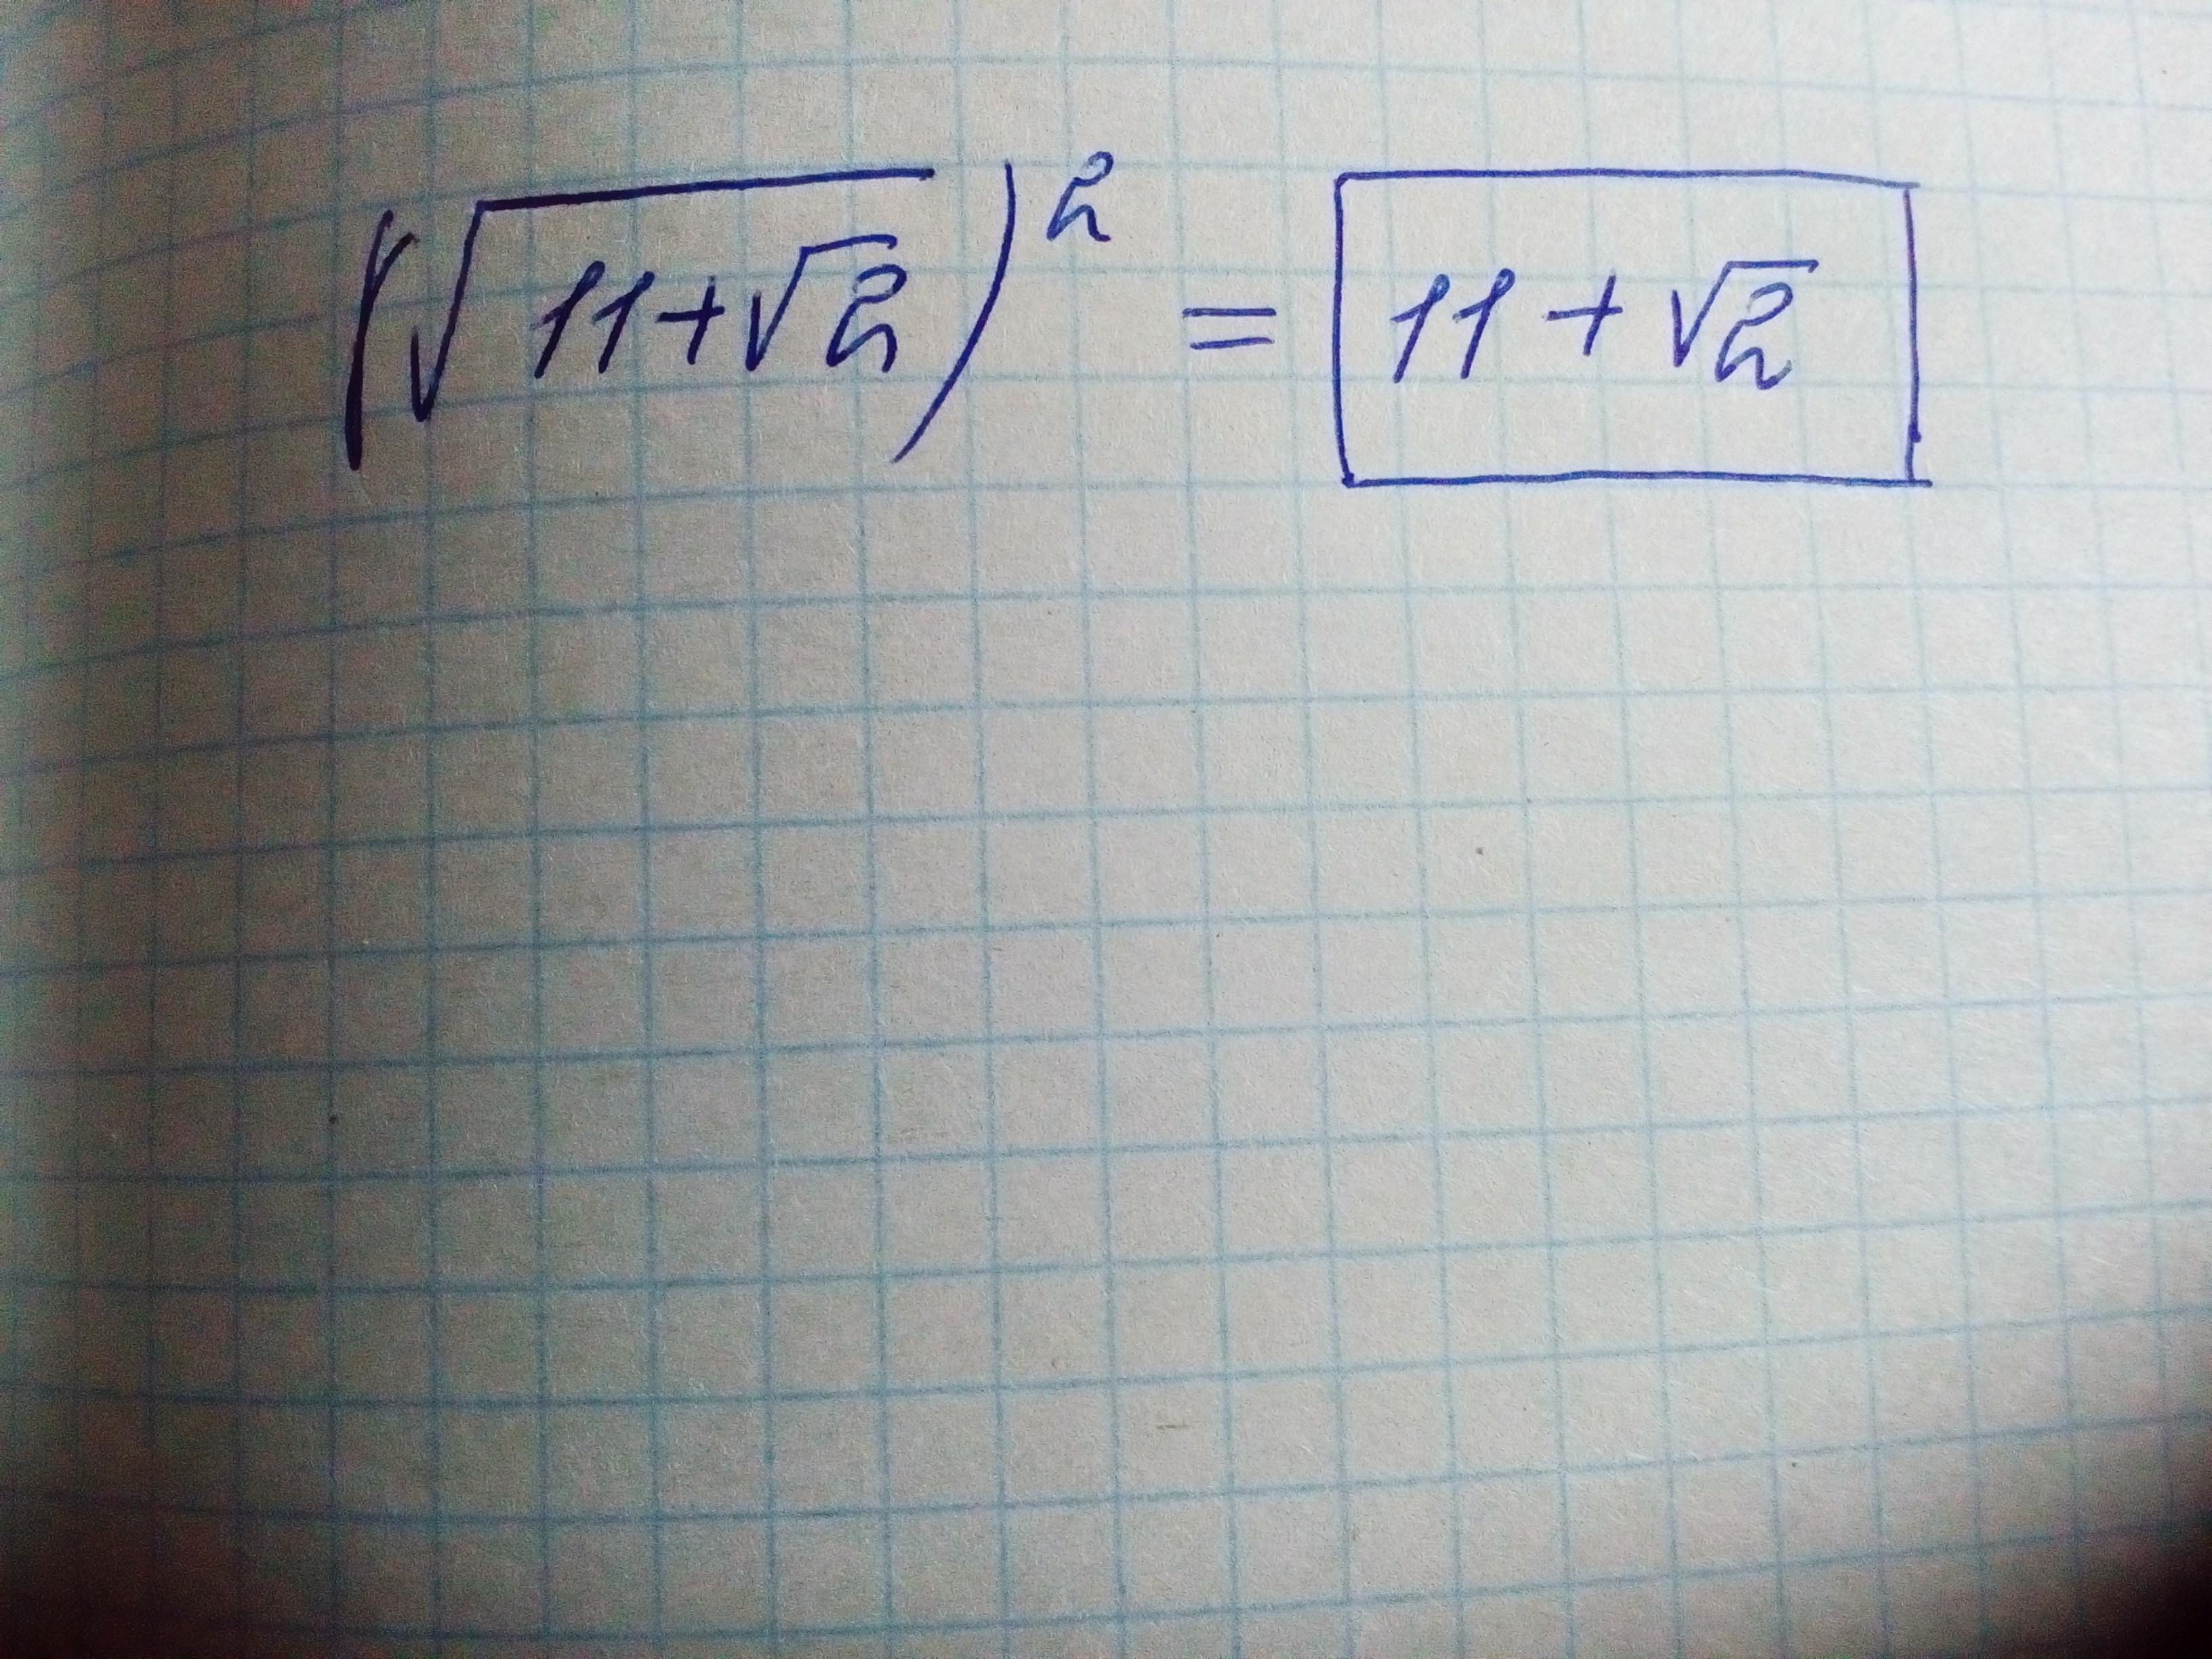 (√(11+√2))² = 11 + √2